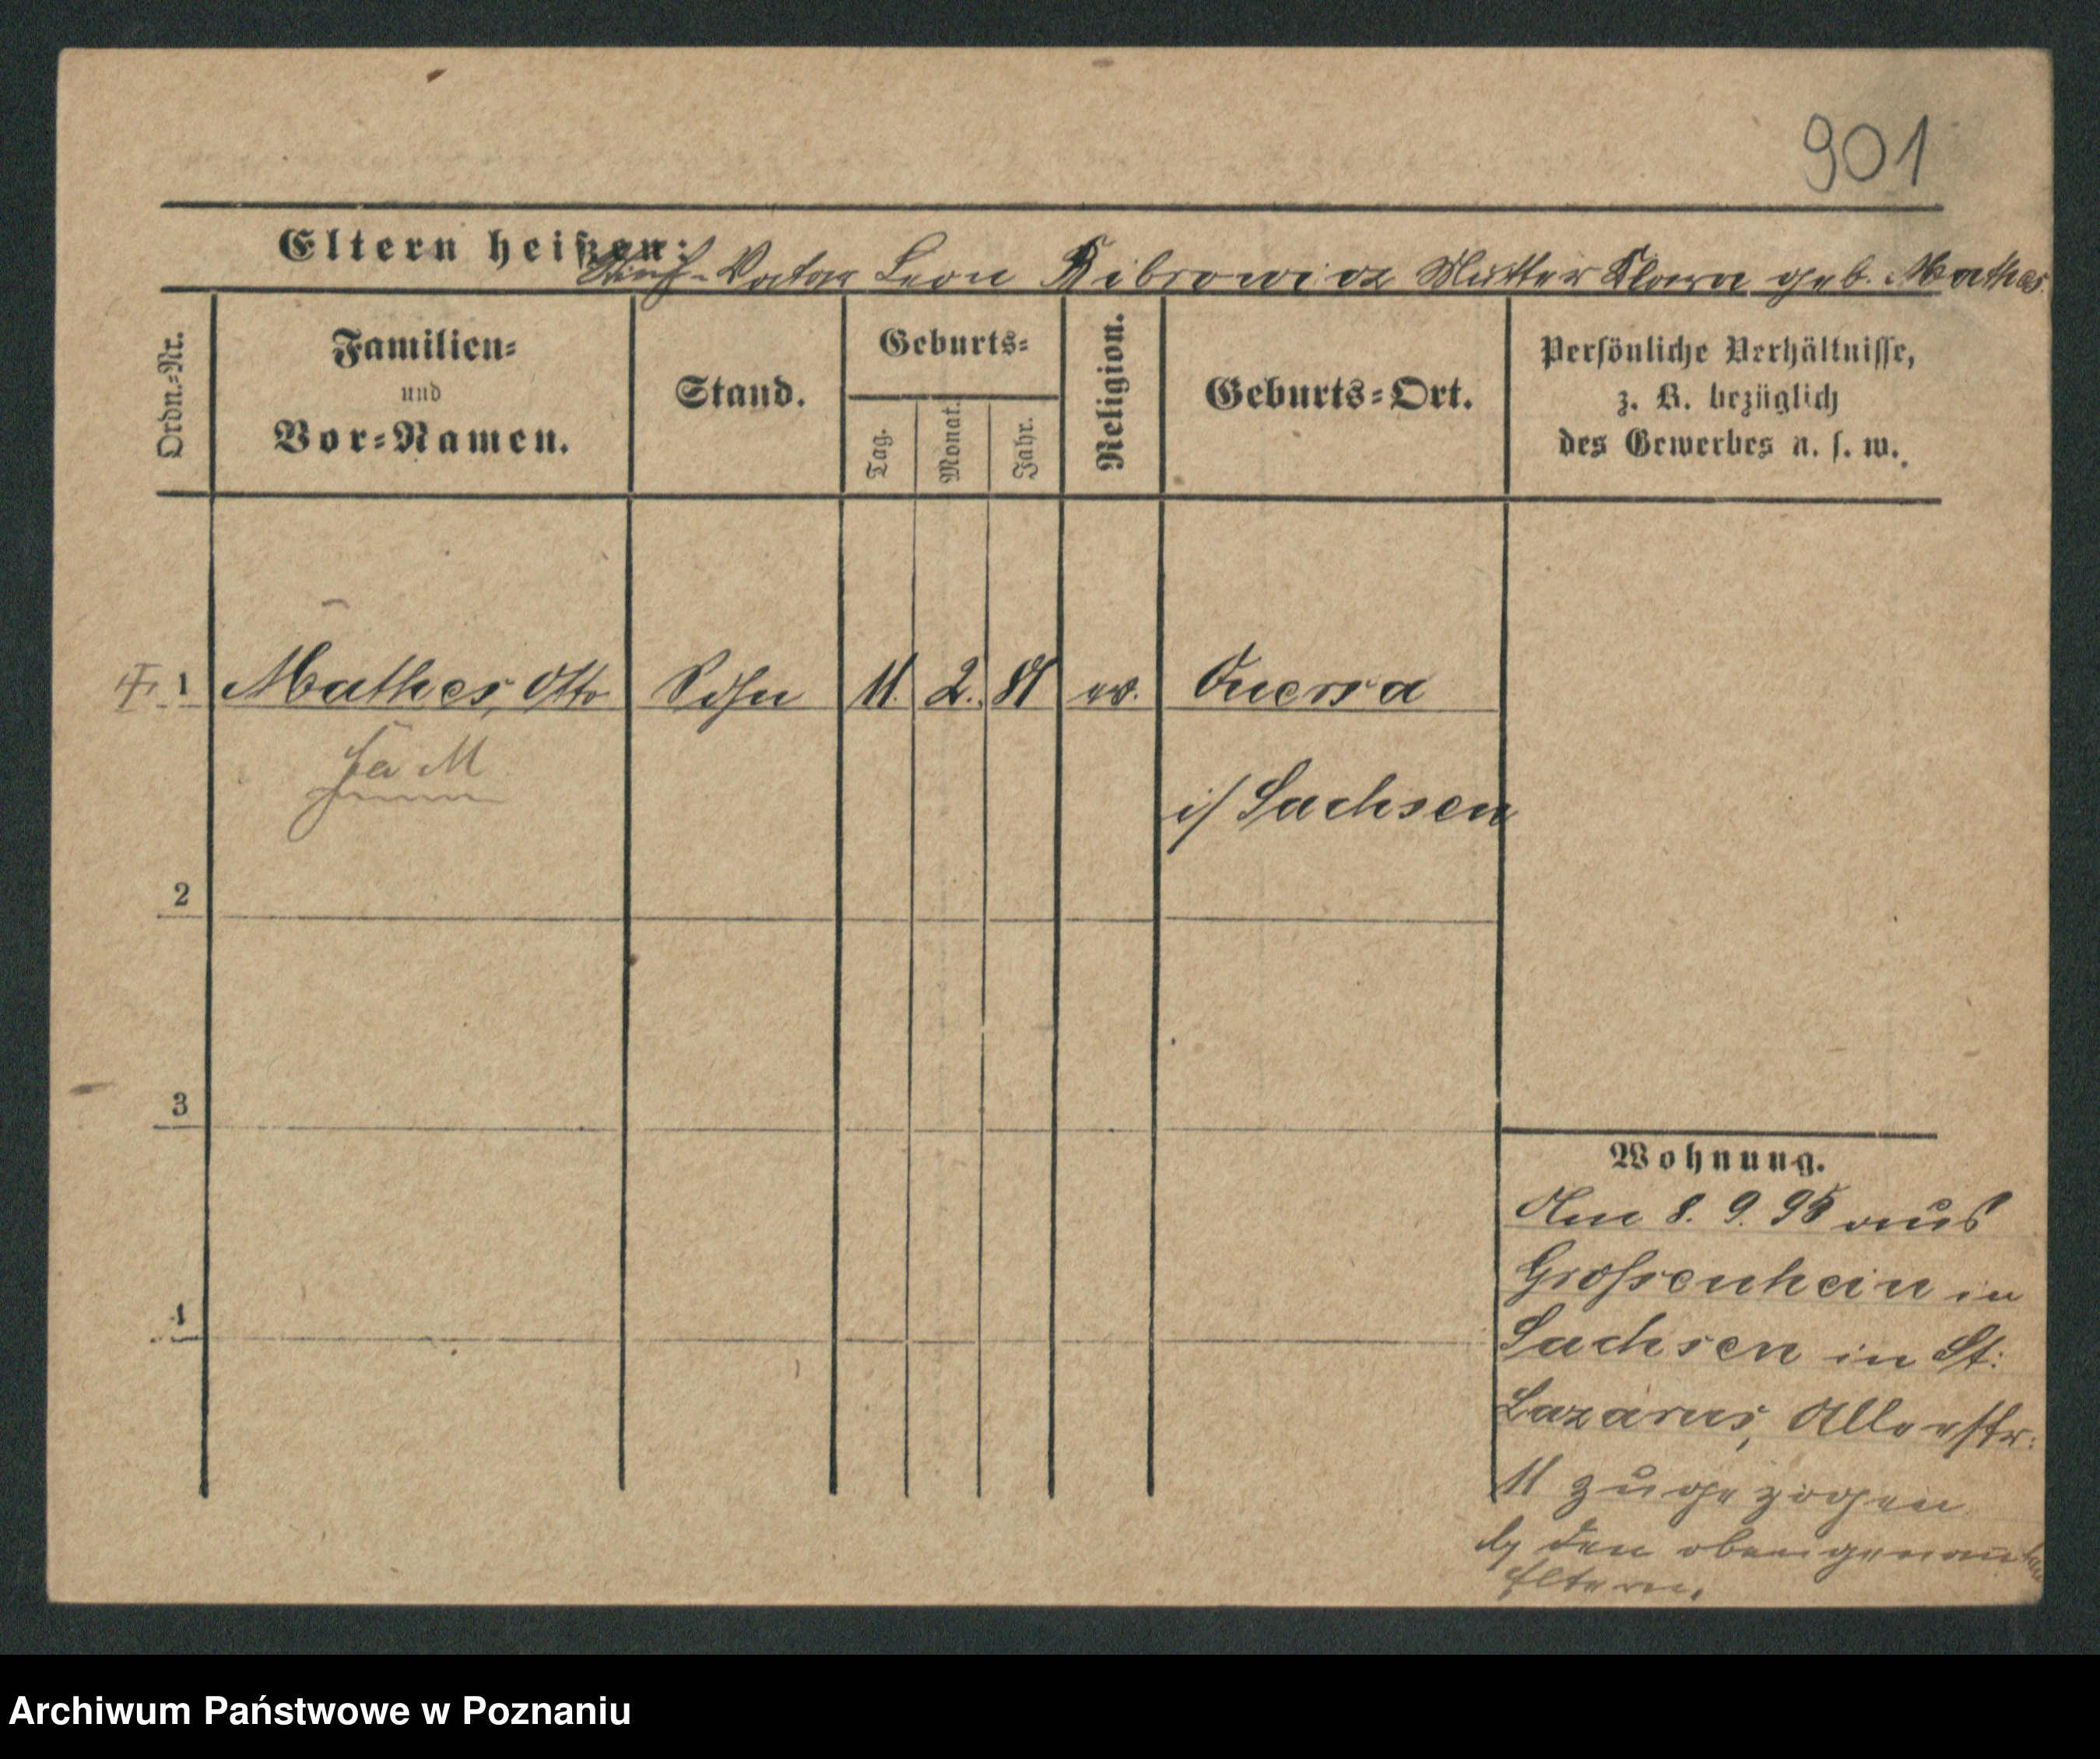 901
Eltern heißen: Stief-Vater Leon Bibrowicz Mutter Klara geb. Mathes.
Ordn.=Nr.
Familien=
und
Vor=Namen.
Stand.
Geburts=
Tag.
Monat.
Jahr.
Religion.
Geburts=Ort.
Persönliche Verhältnisse,
z. B. bezüglich
des Gewerbes u. s. w.
1 Mathes, Otto Sohn 11. 2. 81 ev. Quersa
i/ Sachsen
2
3
4
Wohnung.
Am 8. 9. 95 aus
Großenhein in
Sachsen in St:
Lazarus, Alleestr:
11 zugezogen
den obengenannten
Eltern.
Archiwum Państwowe w Poznaniu